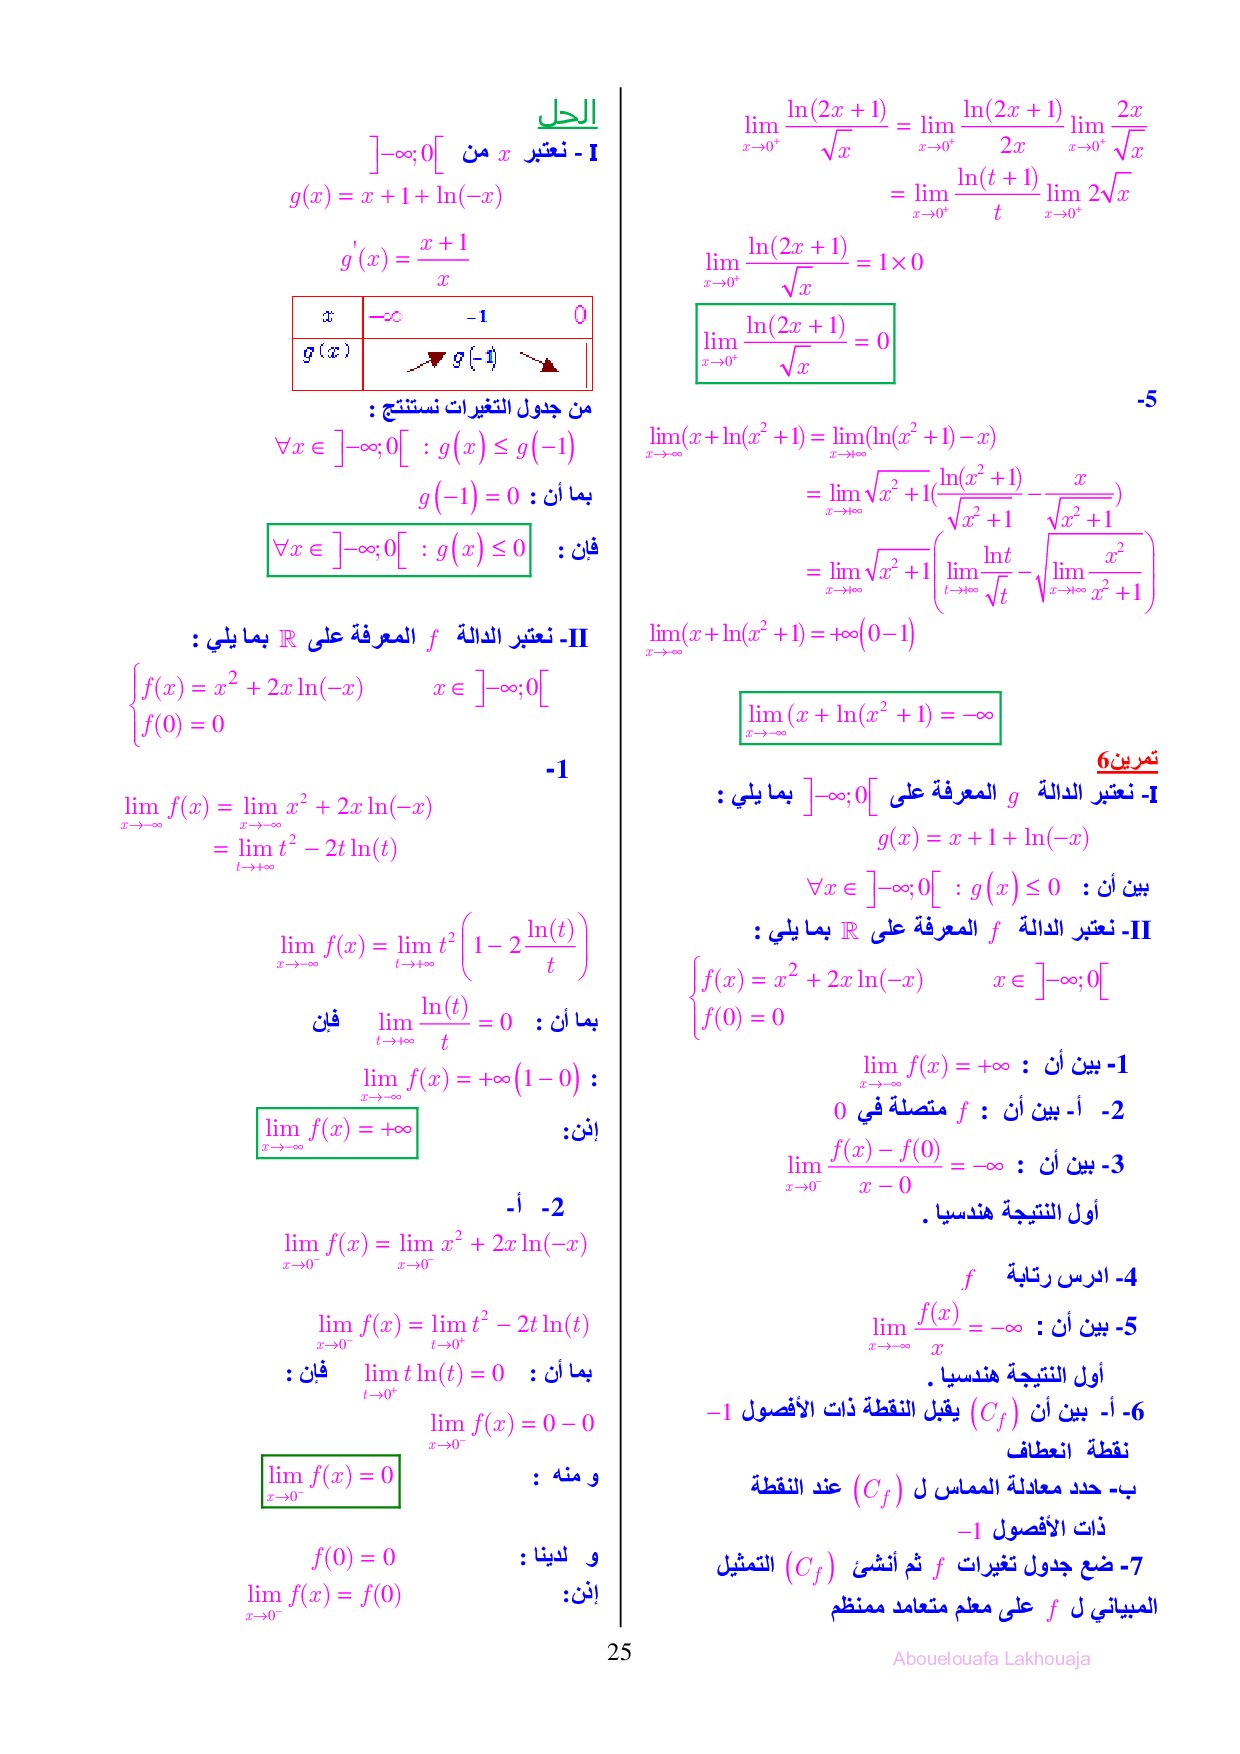 lim_{x→0⁺} ln(2x+1)/√x = lim_{x→0⁺} ln(2x+1)/2x lim_{x→0⁺} 2x/√x
= lim_{x→0⁺} ln(t+1)/t lim_{x→0⁺} 2√x
lim_{x→0⁺} ln(2x+1)/√x = 1×0
lim_{x→0⁺} ln(2x+1)/√x = 0
-5
lim_{x→-∞}(x+ln(x²+1) = lim_{x→+∞}(ln(x²+1)-x)
= lim_{x→+∞} √(x²+1)(ln(x²+1)/√(x²+1) - x/√(x²+1))
= lim_{x→+∞} √(x²+1)(lim_{t→+∞} lnt/√t - √(lim_{x→+∞} x²/(x²+1)))
lim_{x→-∞}(x+ln(x²+1) = +∞(0-1)
lim_{x→-∞}(x+ln(x²+1) = -∞
تمرين6
I- نعتبر الدالة g المعرفة على ]-∞;0[ بما يلي :
g(x) = x+1+ln(-x)
بين أن : ∀x∈ ]-∞;0[ : g(x) ≤ 0
II- نعتبر الدالة f المعرفة على ℝ بما يلي :
{ f(x) = x² + 2x ln(-x) x∈ ]-∞;0[
f(0) = 0
1- بين أن : lim_{x→-∞} f(x) = +∞
2- أ- بين أن : f متصلة في 0
3- بين أن : lim_{x→0⁻} (f(x)-f(0))/(x-0) = -∞
أول النتيجة هندسيا .
4- ادرس رتابة f
5- بين أن : lim_{x→-∞} f(x)/x = -∞
أول النتيجة هندسيا .
6- أ- بين أن (C_f) يقبل النقطة ذات الأفصول -1
نقطة انعطاف
ب- حدد معادلة المماس ل (C_f) عند النقطة
ذات الأفصول -1
7- ضع جدول تغيرات f ثم أنشئ (C_f) التمثيل
المبياني ل f على معلم متعامد ممنظم
الحل
I - نعتبر x من ]-∞;0[
g(x) = x+1+ln(-x)
g'(x) = (x+1)/x
x -∞ -1 0
g(x) g(-1)
من جدول التغيرات نستنتج :
∀x∈ ]-∞;0[ : g(x) ≤ g(-1)
بما أن : g(-1) = 0
فإن : ∀x∈ ]-∞;0[ : g(x) ≤ 0
II- نعتبر الدالة f المعرفة على ℝ بما يلي :
{ f(x) = x² + 2x ln(-x) x∈ ]-∞;0[
f(0) = 0
-1
lim_{x→-∞} f(x) = lim_{x→-∞} x² + 2x ln(-x)
= lim_{t→+∞} t² - 2t ln(t)
lim_{x→-∞} f(x) = lim_{t→+∞} t²(1 - 2 ln(t)/t)
بما أن : lim_{t→+∞} ln(t)/t = 0 فإن
: lim_{x→-∞} f(x) = +∞(1-0)
إذن: lim_{x→-∞} f(x) = +∞
2- أ-
lim_{x→0⁻} f(x) = lim_{x→0⁻} x² + 2x ln(-x)
lim_{x→0⁻} f(x) = lim_{t→0⁺} t² - 2t ln(t)
بما أن : lim_{t→0⁺} t ln(t) = 0 فإن :
lim_{x→0⁻} f(x) = 0 - 0
و منه : lim_{x→0⁻} f(x) = 0
و لدينا : f(0) = 0
إذن: lim_{x→0⁻} f(x) = f(0)
25
Abouelouafa Lakhouaja